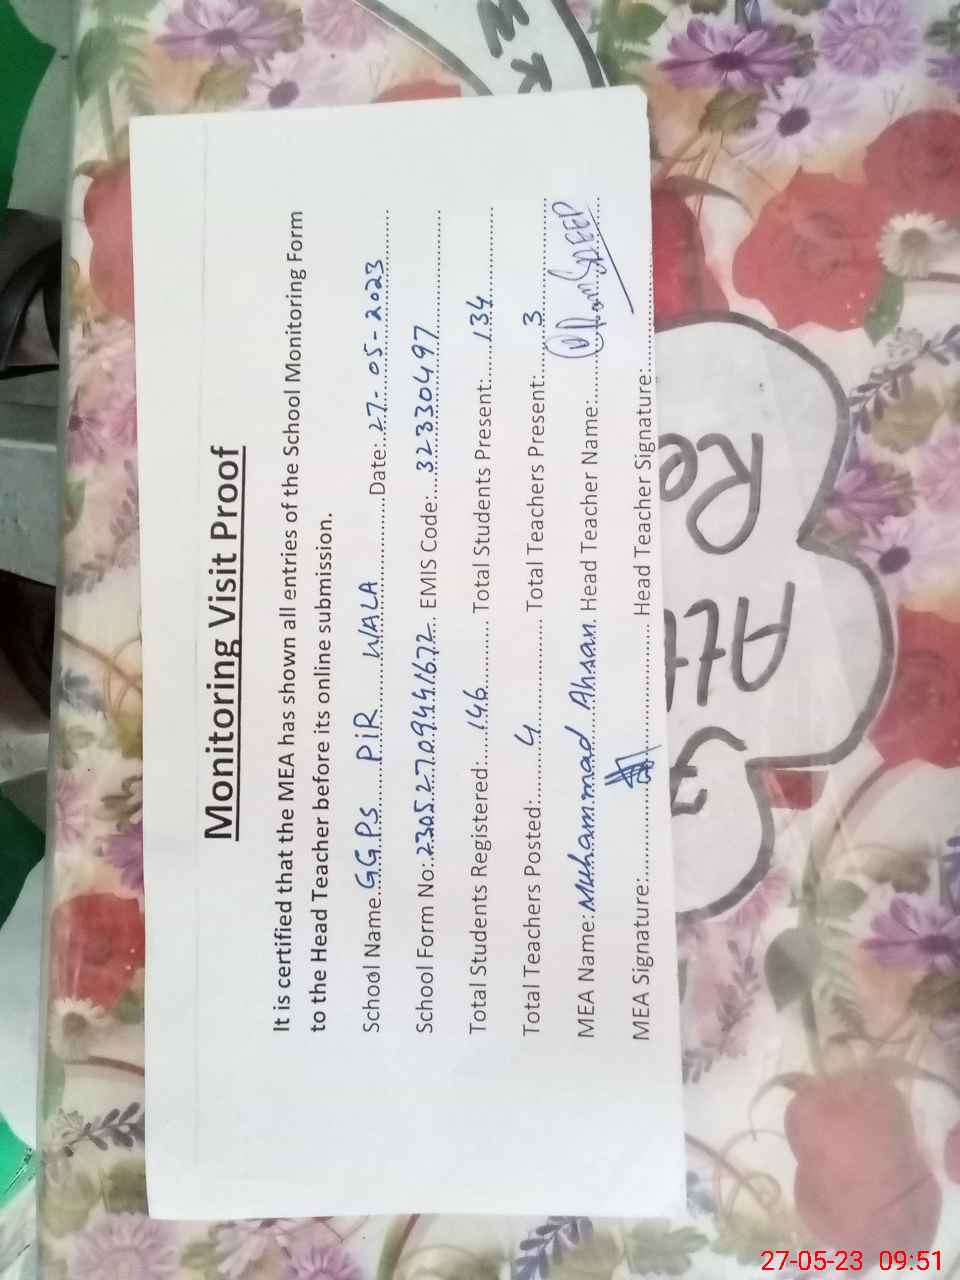 Monitoring Visit Proof
It is certified that the MEA has shown all entries of the School Monitoring Form
to the Head Teacher before its online submission.
School Name: GGPS PIR WALA Date: 27-05-2023
School Form No: 23052709441672 EMIS Code: 32330497
Total Students Registered: 146 Total Students Present: 134
Total Teachers Posted: 4 Total Teachers Present: 3
MEA Name: Muhammad Ahsan Head Teacher Name:
MEA Signature: Head Teacher Signature:
27-05-23 09:51